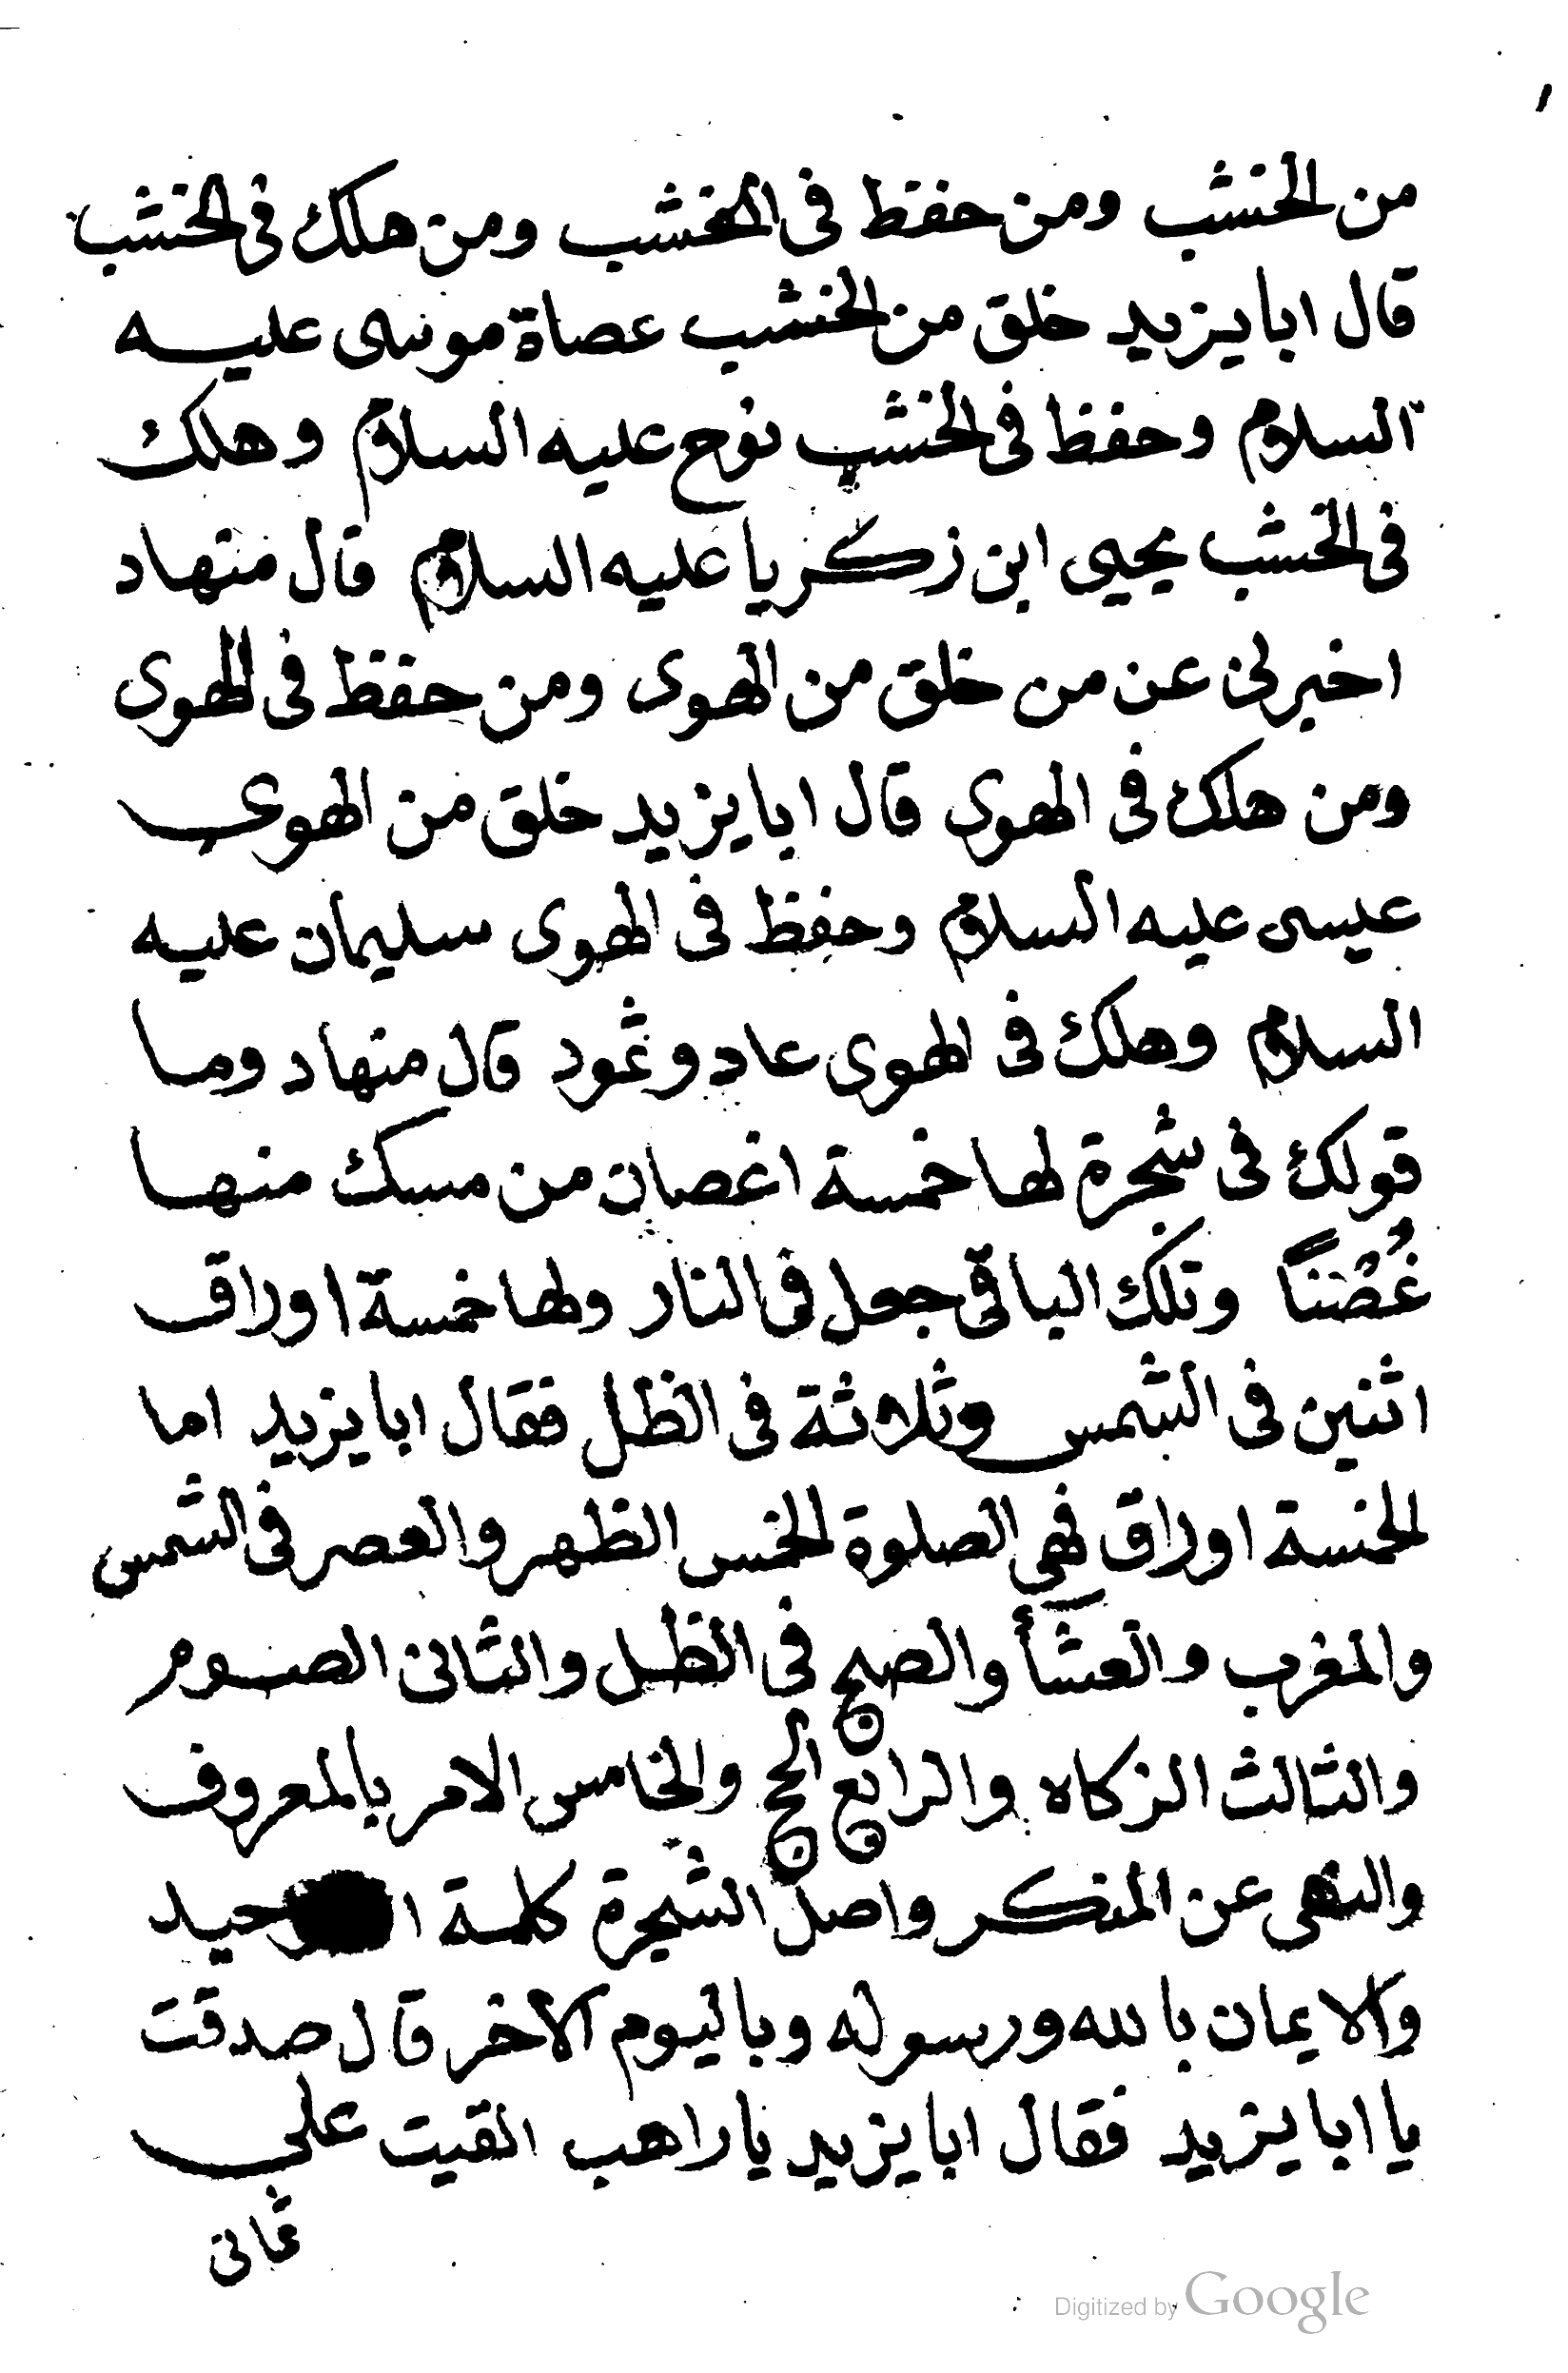 من الخشب ومن حفظ فى الخشب ومن هلك فى الخشب
قال ابا يزيد خلق من الخشب عصاة موسى عليه
السلام وحفظ فى الخشب نوح عليه السلام وهلك
فى الخشب يحيى ابن زكريا عليه السلام قال منهاد
اخبرنى عن من خلق من الهوى ومن حفظ فى الهوى
ومن هلك فى الهوى قال ابا يزيد خلق من الهوى
عيسى عليه السلام وحفظ فى الهوى سليمان عليه
السلام وهلك فى الهوى عاد وثمود قال منهاد وما
قولك فى شجرة لها خمسة اغصان من مسك منها
غُصْنًا وتلك الباقى جعل فى النار ولها خمسة اوراق
اثنين فى الشمس وثلاثة فى الظل فقال ابا يزيد اما
الخمسة اوراق فهى الصلوة الخمس الظهر والعصر فى الشمس
والمغرب والعشأ والصبح فى الظل والثانى الصوم
والثالث الزكاه والرابع الحج والخامس الامر بالمعروف
والنهى عن المنكر واصل الشجرة كلمة
والايمان بالله ورسوله وباليوم الاخر قال صدقت
يا ابا يزيد فقال ابا يزيد يا راهب القيت على
ثمانى
Digitized by Google